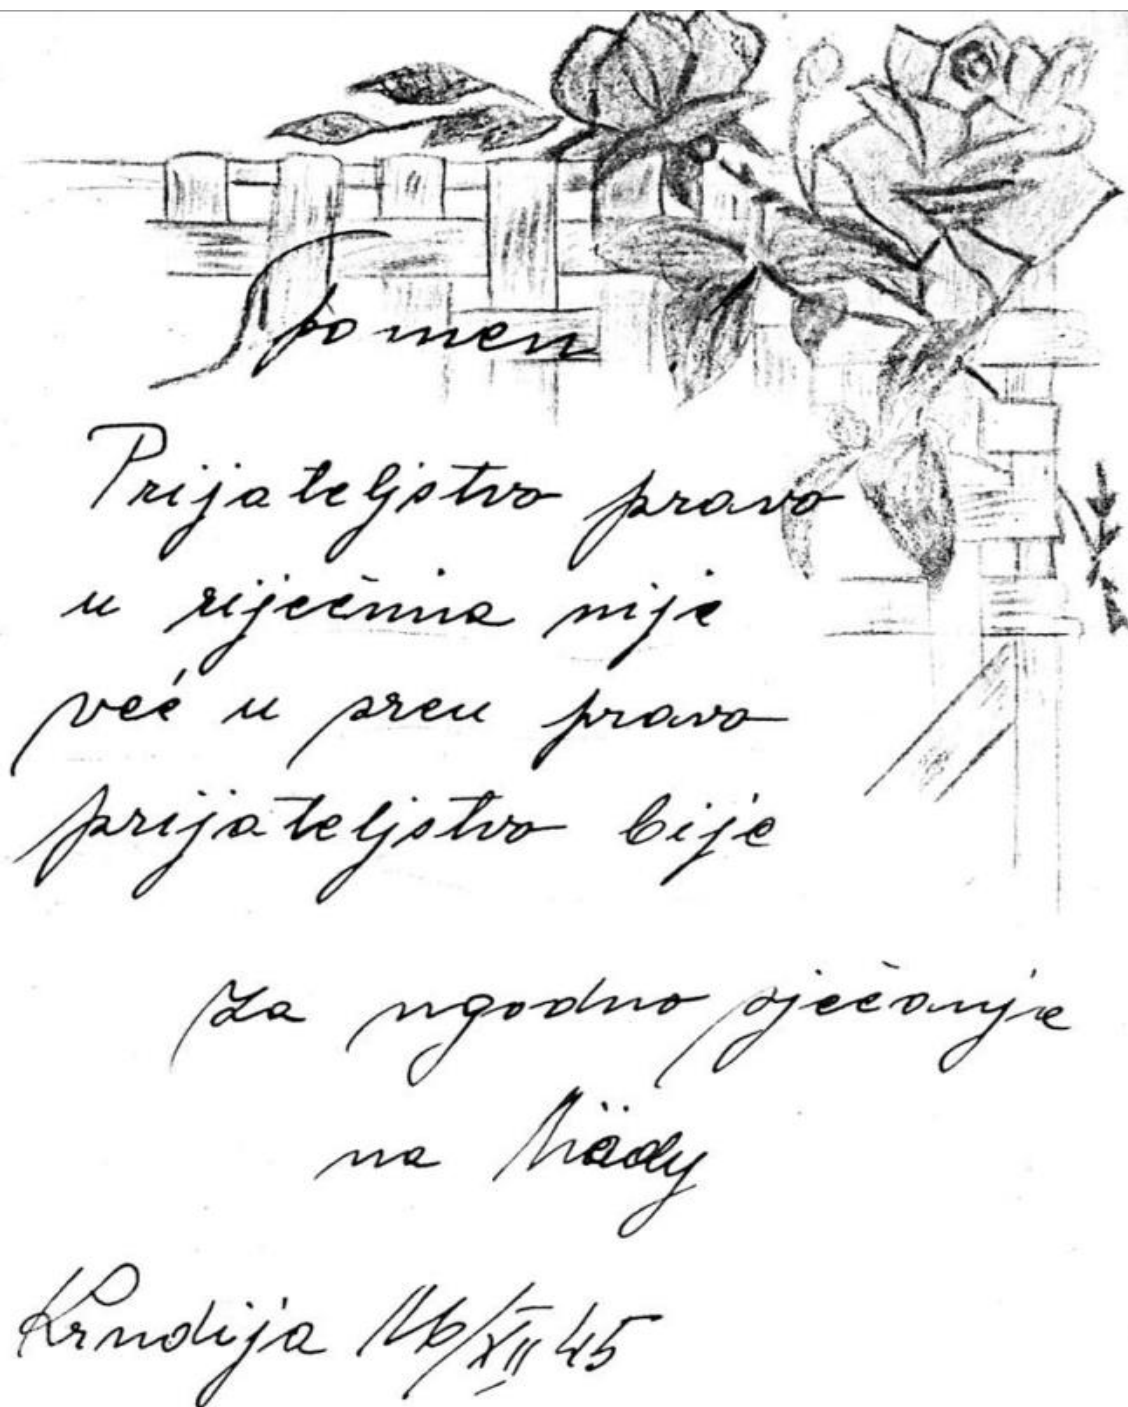 Spomen
Prijateljstvo pravo
u riječima nije
već u srcu pravo
prijateljstvo bije
Za ugodno sjećanje
na Mädy
Krndija 16/XII 45